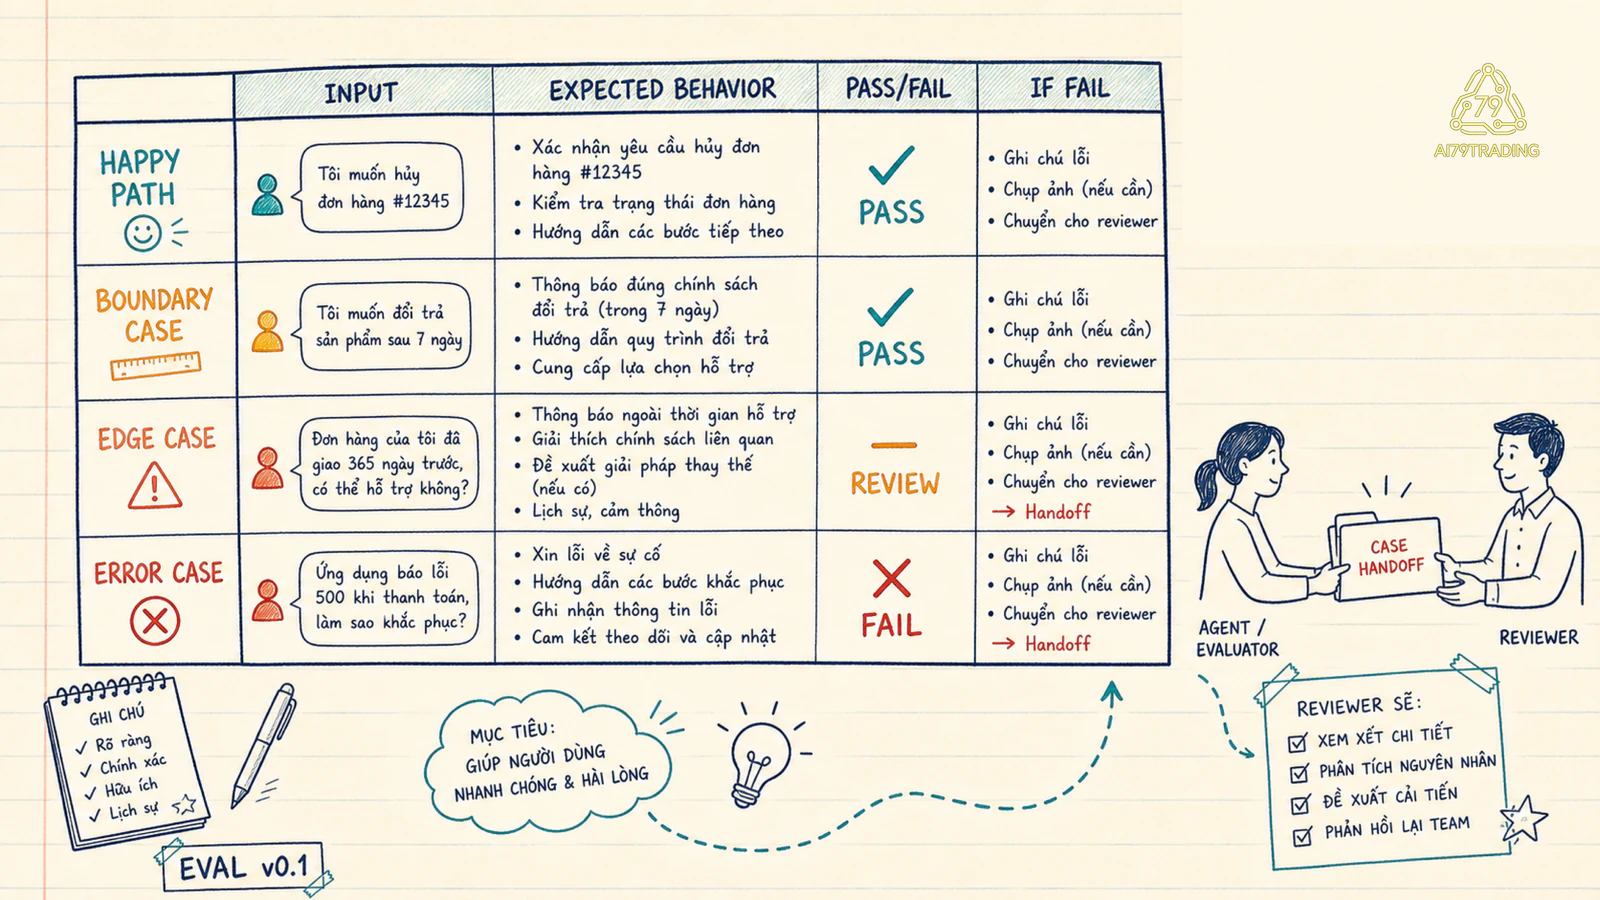 INPUT
EXPECTED BEHAVIOR
PASS/FAIL
IF FAIL
HAPPY
PATH
Tôi muốn hủy
đơn hàng #12345
• Xác nhận yêu cầu hủy đơn
hàng #12345
• Kiểm tra trạng thái đơn hàng
• Hướng dẫn các bước tiếp theo
PASS
• Ghi chú lỗi
• Chụp ảnh (nếu cần)
• Chuyển cho reviewer
BOUNDARY
CASE
Tôi muốn đổi trả
sản phẩm sau 7 ngày
• Thông báo đúng chính sách
đổi trả (trong 7 ngày)
• Hướng dẫn quy trình đổi trả
• Cung cấp lựa chọn hỗ trợ
PASS
• Ghi chú lỗi
• Chụp ảnh (nếu cần)
• Chuyển cho reviewer
EDGE CASE
Đơn hàng của tôi đã
giao 365 ngày trước,
có thể hỗ trợ không?
• Thông báo ngoài thời gian hỗ trợ
• Giải thích chính sách liên quan
• Đề xuất giải pháp thay thế
(nếu có)
• Lịch sự, cảm thông
REVIEW
• Ghi chú lỗi
• Chụp ảnh (nếu cần)
• Chuyển cho reviewer
→ Handoff
ERROR CASE
Ứng dụng báo lỗi
500 khi thanh toán,
làm sao khắc phục?
• Xin lỗi về sự cố
• Hướng dẫn các bước khắc phục
• Ghi nhận thông tin lỗi
• Cam kết theo dõi và cập nhật
FAIL
• Ghi chú lỗi
• Chụp ảnh (nếu cần)
• Chuyển cho reviewer
→ Handoff
79
AI79TRADING
CASE
HANDOFF
AGENT /
EVALUATOR
REVIEWER
GHI CHÚ
✓ Rõ ràng
✓ Chính xác
✓ Hữu ích
✓ Lịch sự
EVAL v0.1
MỤC TIÊU:
GIÚP NGƯỜI DÙNG
NHANH CHÓNG & HÀI LÒNG
REVIEWER SẼ:
☑ XEM XÉT CHI TIẾT
☑ PHÂN TÍCH NGUYÊN NHÂN
☑ ĐỀ XUẤT CẢI TIẾN
☑ PHẢN HỒI LẠI TEAM